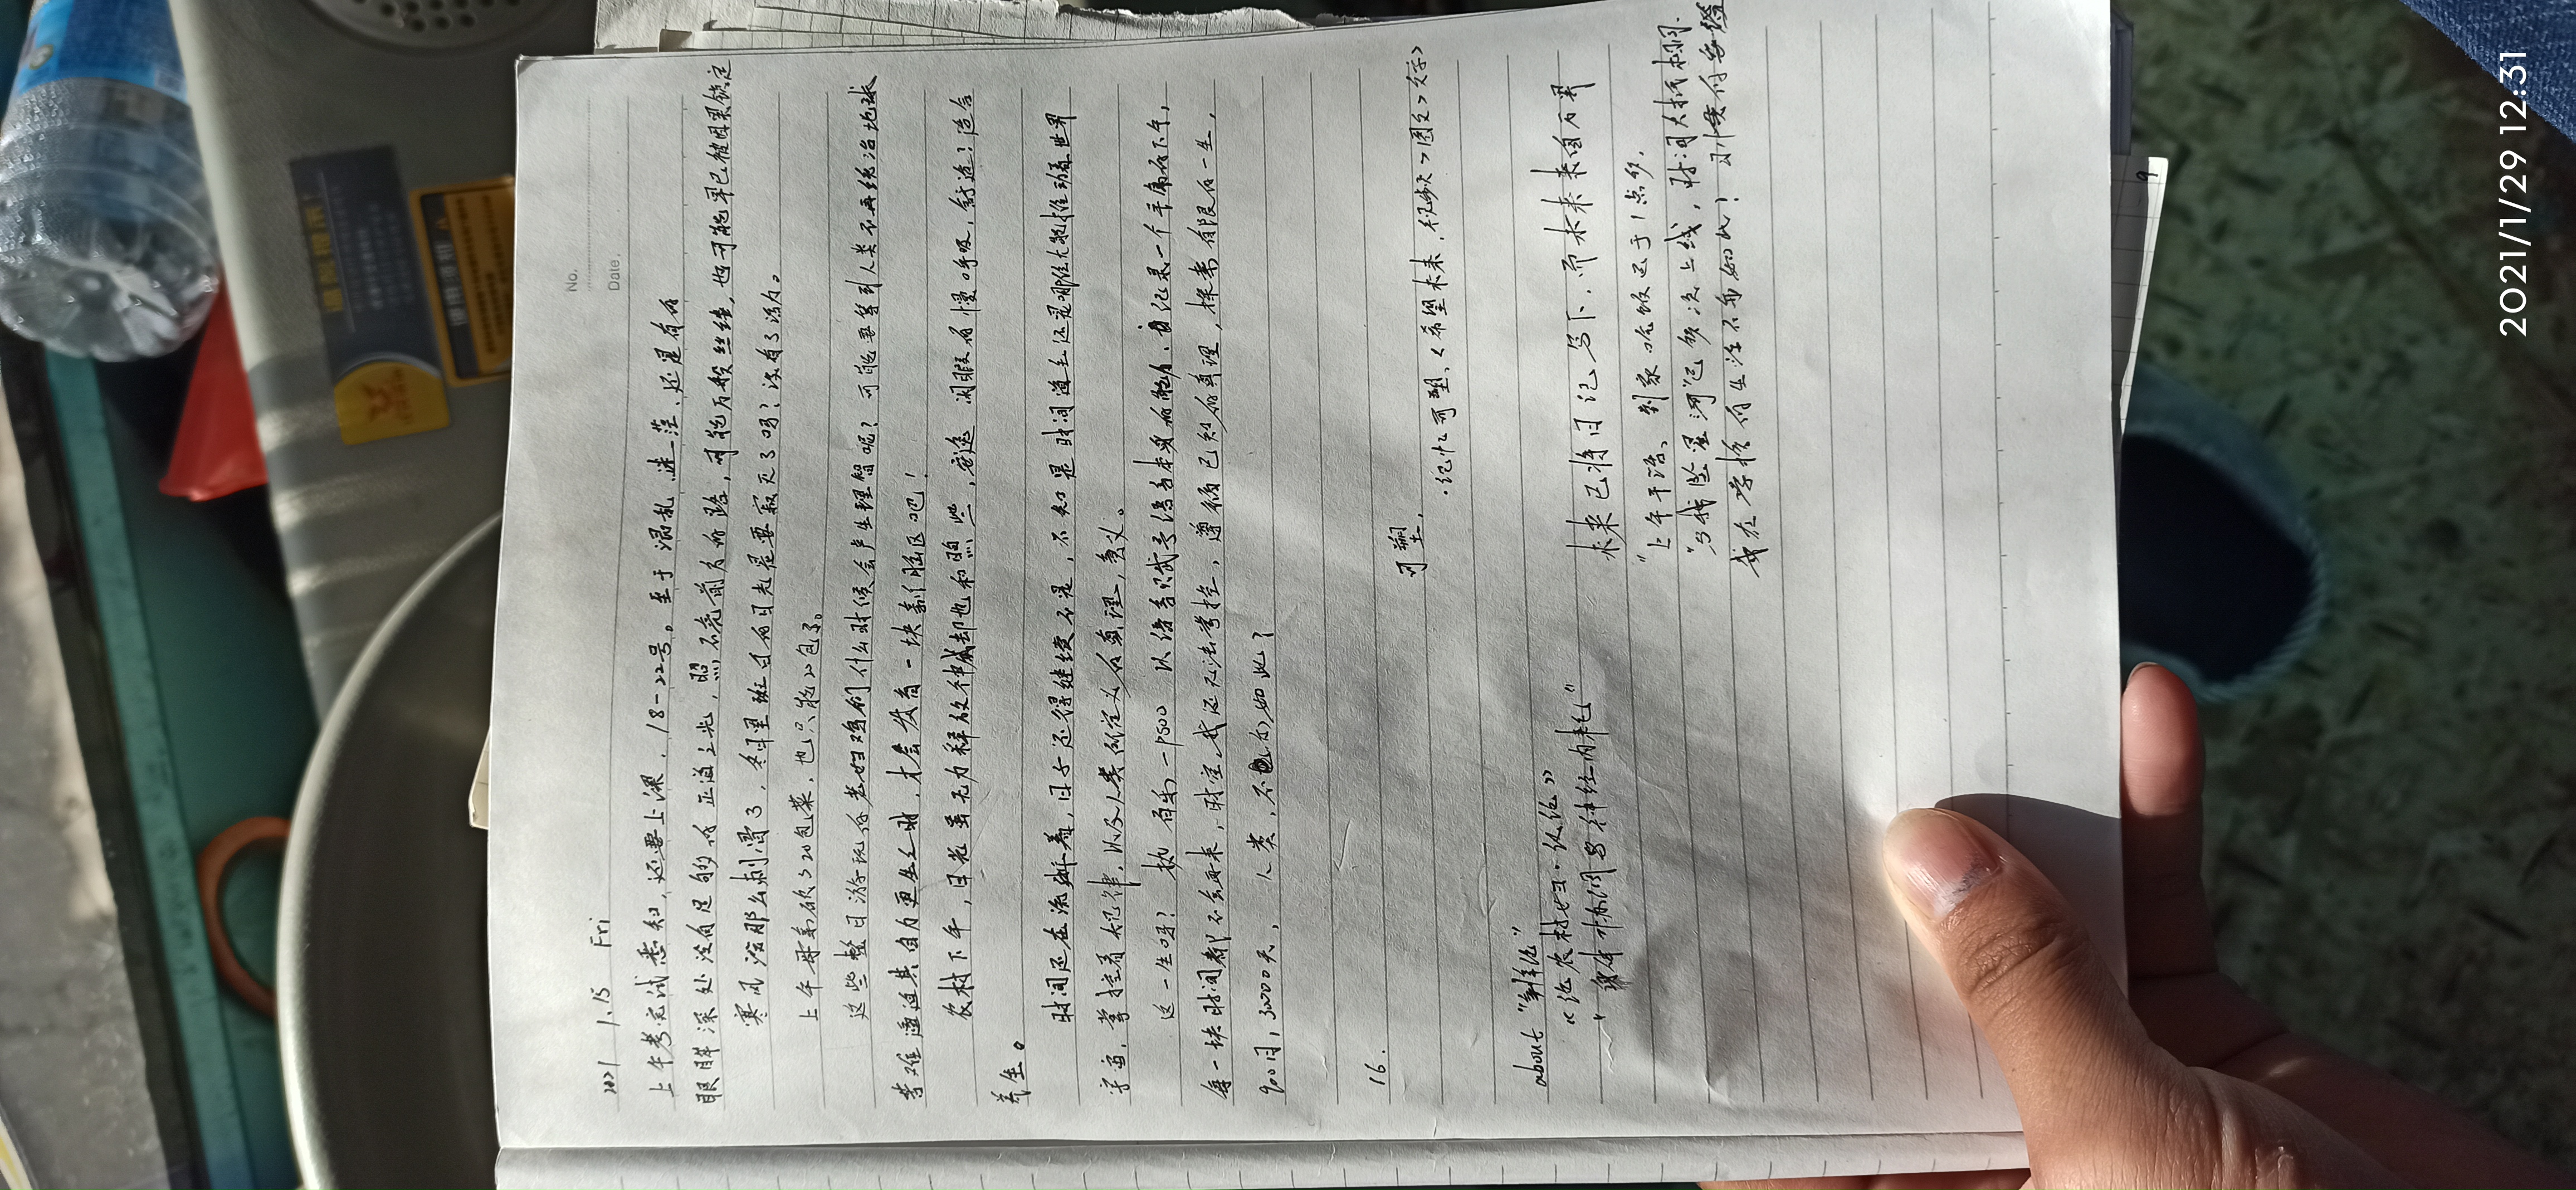 温馨提示！
使用须知
No.
Date.
2021 1.15 Fri
上午考完试悉知，还要上课，18-22号。至于混乱、迷茫、还是有的
眼眸深处没有足够的正道之光，照不亮前方的路，可能万般丝缕，也可能早已被因果锁定
寒风没那么刺骨了，冬日里斑白的日光是要寂灭了吗？没有了活力。
上午母亲砍了20包菜，也只能20包了。
这些整日游玩的老妇鸡们什么时候会产生理智呢？可能要等到人类不再统治地球
苦难逼迫其自力更生之时，才会发育一块新脑区吧！
农村下午，日光虽无力释放神威却也和照些，安逸 闲暇的慢呼吸，舒适？适合
养生。
时间还在流逝着，日子还得继续不是，不知是时间道主还是哪位大能推动着世界
宇宙，掌控着规律，以及人类所定义的真理，意义。
这一生吗？执百利-p500 以语言只式号语言本身的能力，自纪录一个平庸的下午，
每一块时间都不会再来，时空，我还无法掌控，遵循已知的真理，探索有限的一生，
900月，30000天， 人类，不也尔如此？
16.
可塑，
·记忆可塑、<希望未来，视频>图文>文字>
about
《论农村妇·仇论》
"身体协调与神经内耗"
未来已将日记写下，而未来来自万界
"上午干活、到家吃饭已于1点多，
"与我坠星河"已多次上线，时间大抵相同.
我在学校的生活不亦如此？
9
2021/1/29 12:31